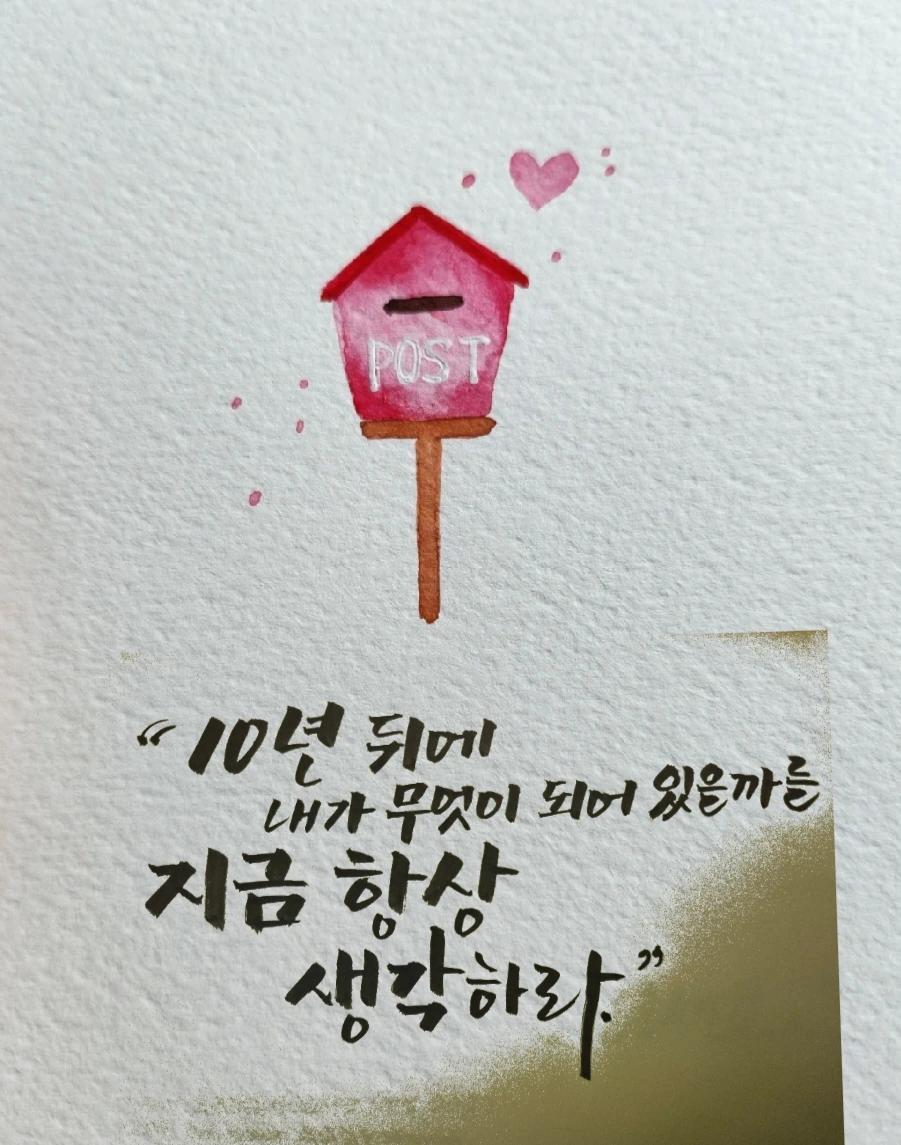 POST
“10년 뒤에
내가 무엇이 되어 있을까를
지금 항상
생각하라.”